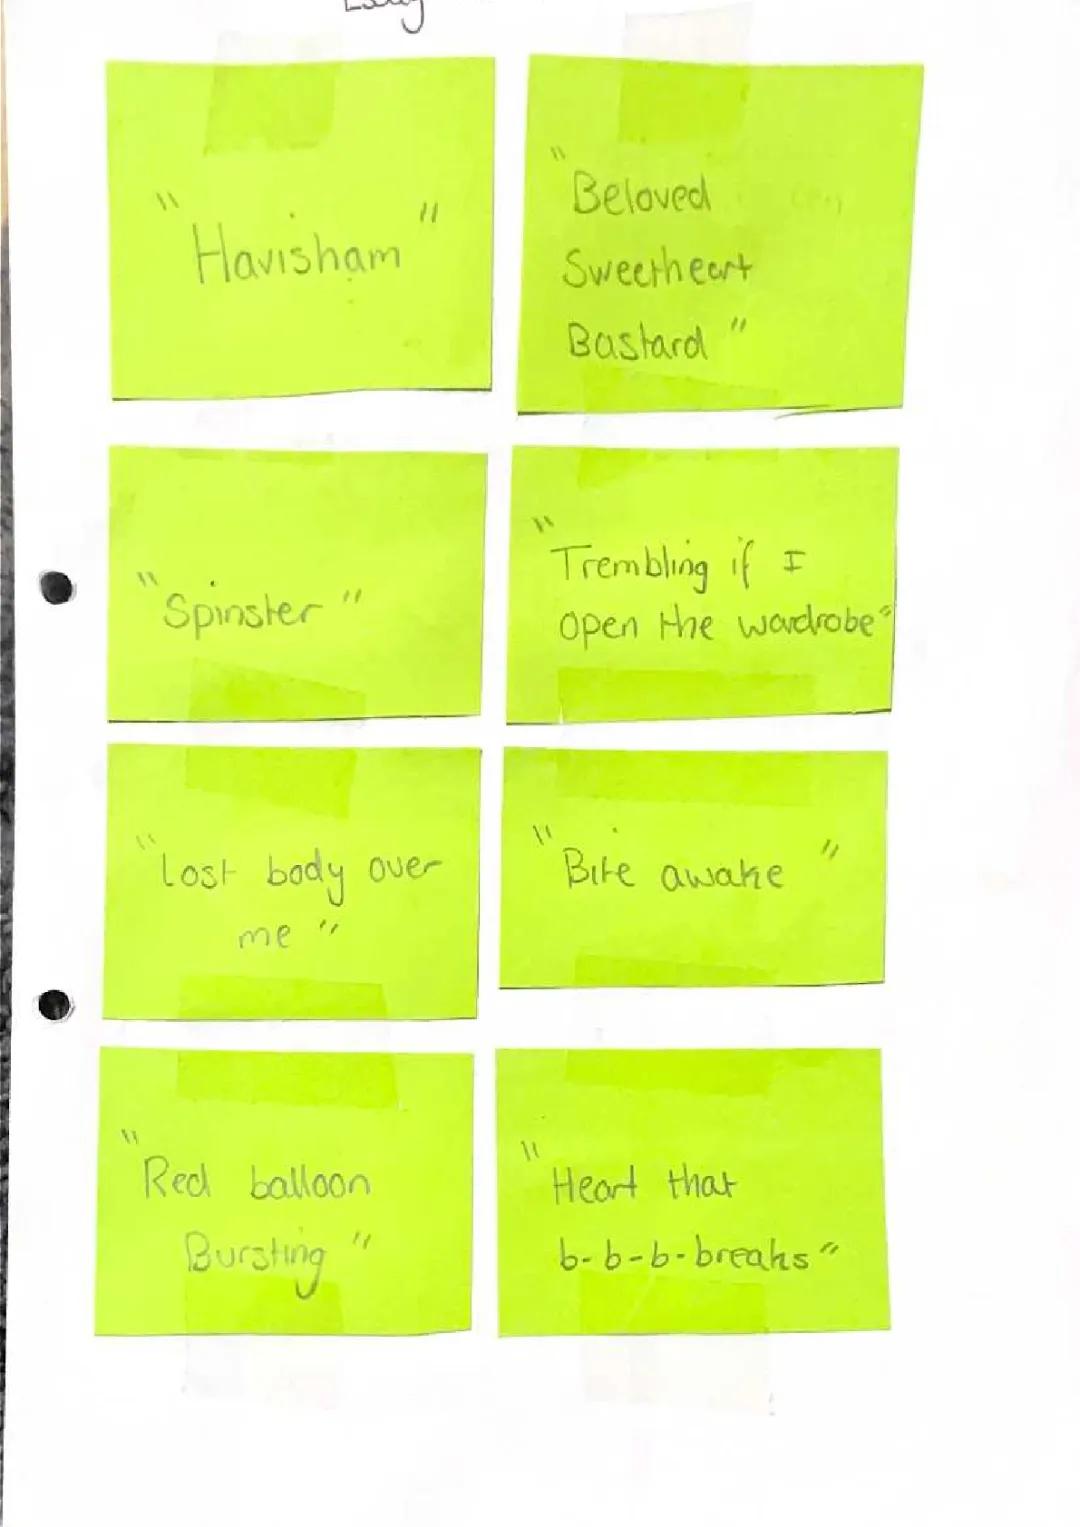 Essay
"Havisham"
"Beloved
Sweetheart
Bastard"
"Spinster"
"Trembling if I
open the wardrobe"
"Lost body over
me"
"Bite awake"
"Red balloon
Bursting"
"Heart that
b-b-b-breaks"